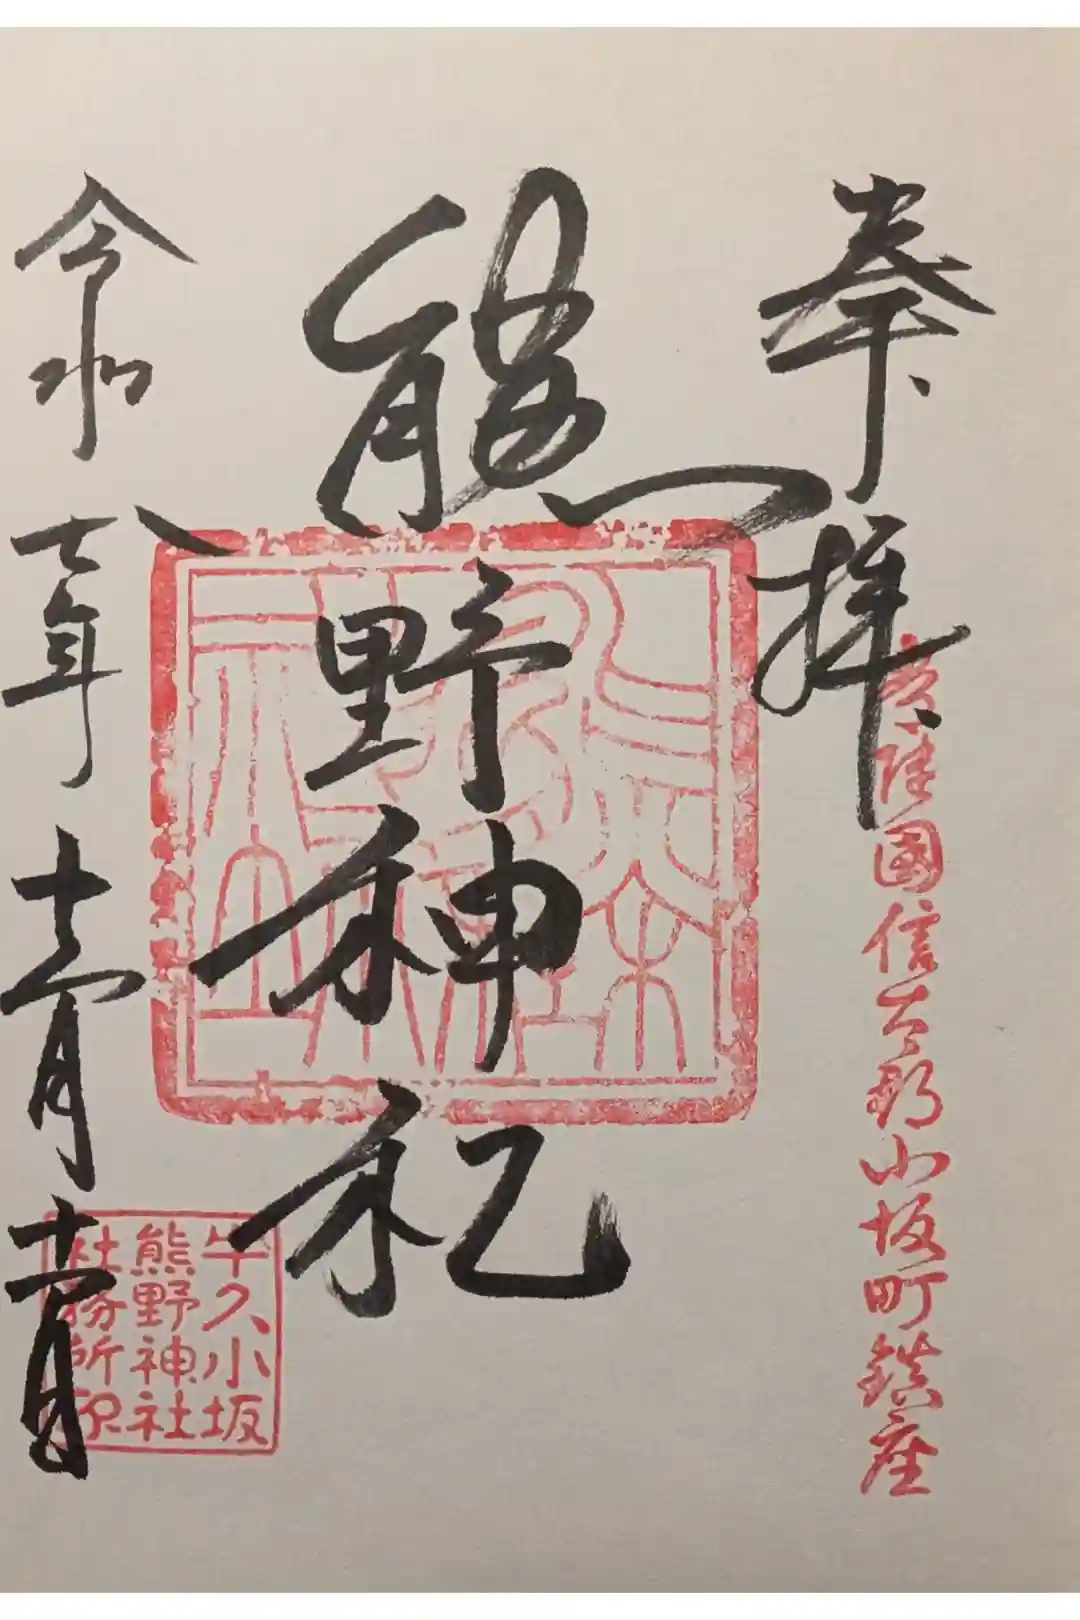 奉拝
常陸國信太郡小坂町鎮座
熊野神社
令和七年
牛久小坂
熊野神社
社務所印